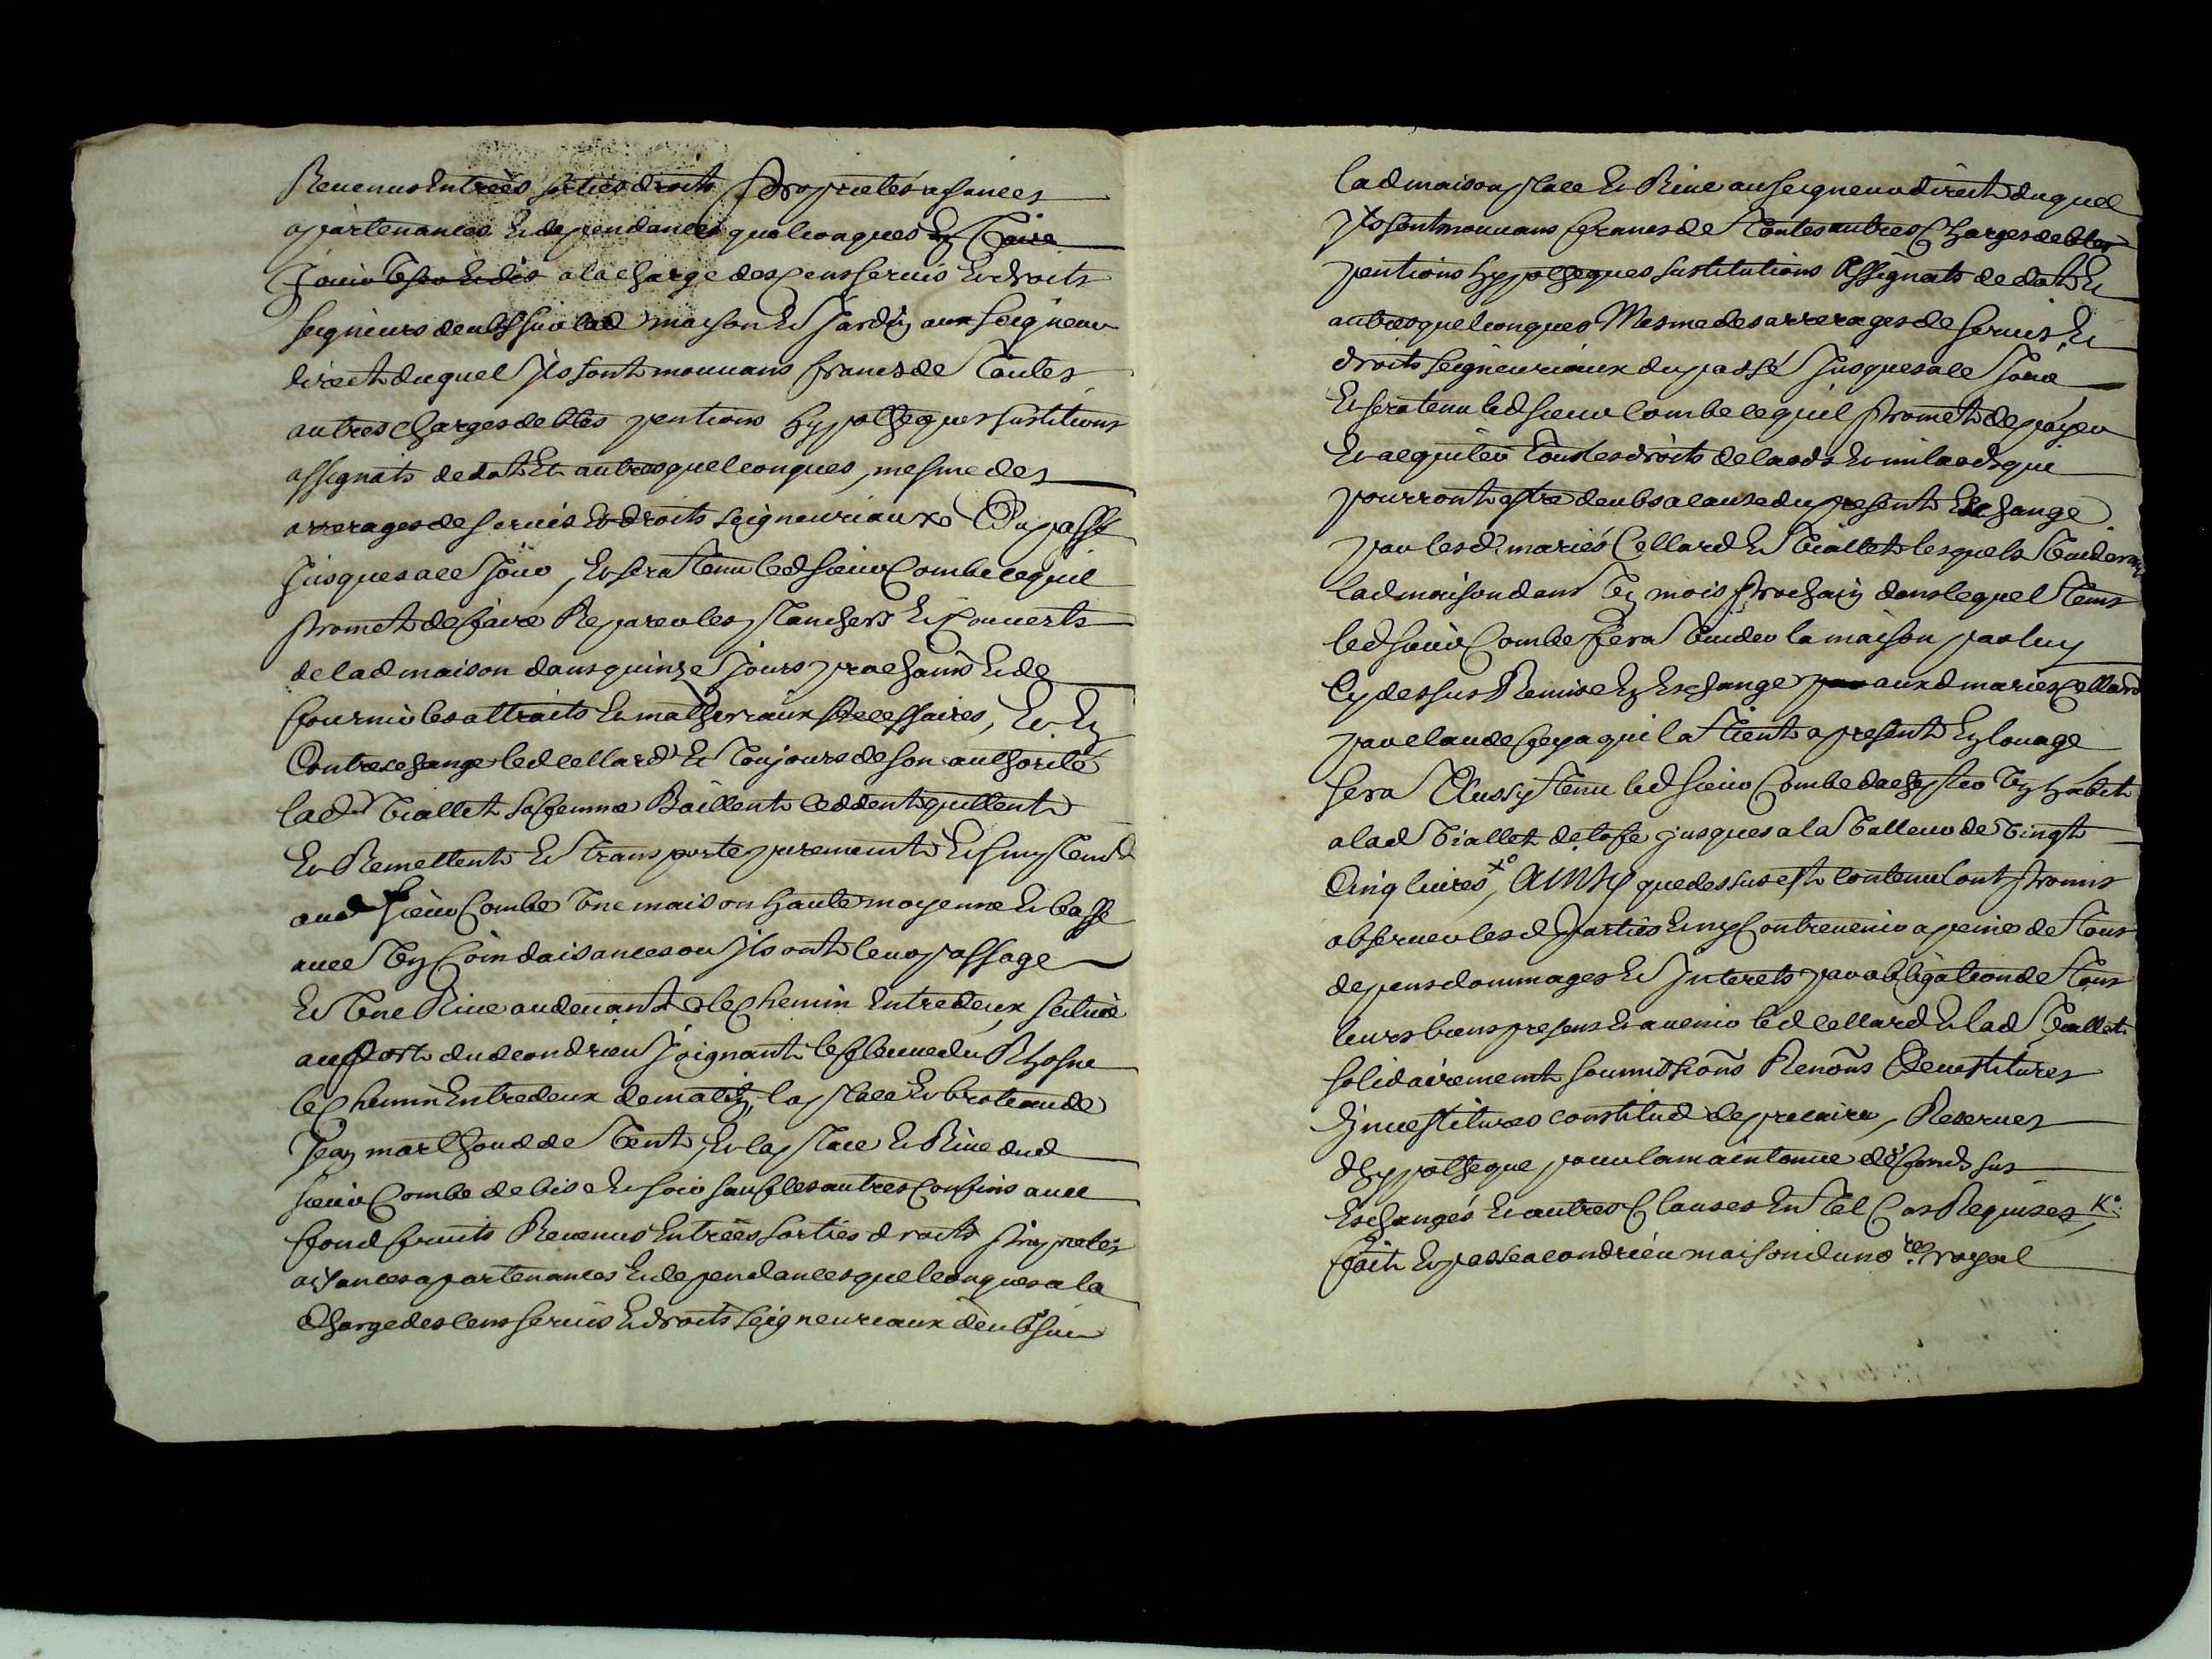 Revenus Entrées sorties droits proprietés aisances
apartenances Et dependances quelconques
a la charge des cens servis Et droits
seigneuriaux deubs sur lad maison Et Jardin aux seigneur
direct duquel Jls sont mouvans francs de Toutes
autres charges debtes pentions hypotheques sustitions
assignats de dot Et autres quelconques, mesme des
arrerages de servis Et droits seigneuriaux Du passé
Jusques a ce Jour, Et sera Tenu led sieur Combe ce quil
promet de faire Reparer les planchers Et Couverts
de lad maison dans quinze Jours prochains Et de
fournir les attraits Et matherriaux Necessaires, Et En
Contreschange led Cellard Et Toujours de son authorité
lad Viallet sa femme Baillent ceddent quittent
Et Remettent Et Transporte purement Et simplemt
aud Sieur Combe Vne maison haute moyenne Et basse
avec Vn Coin daisances ou Jls ont leur passage
Et Vne Rive au devant le Chemin Entredeux scituée
au port dud condrieu Joignant le fleuve du Rhosne
le Chemin Entredeux de matin, la place Et broteau de
Jean marthoud de Vent, Et la place Et Rive dud
sieur Combe de bise Et soir sauf les autres Confins avec
fond fruits Revenus Entrées sorties droits proprietés
aisances apartenances Et dependances quelconques a la
Charge des cens servis Et droits seigneuriaux deubs sur
lad maison place Et Rive au seigneur direct duquel
Jls sont mouvans francs de Toutes autres Charges debtes
pentions hypotheques sustitutions Assignats de dot Et
autres quelconques Mesme des arrerages de servis Et
droits seigneuriaux du passé Jusques a ce Jour
Et sera tenu led sieur Combe ce quil promet de payer
Et acquiter Tous les droits de laods Et milaods qui
pourront estre deubs a cause du present Eschange
par lesd mariés Cellard Et Viallet lesquels Vuideront
lad maison dans Vn mois prochain dans lequel Tems
led sieur Combe fera Vuider la maison par luy
Cy dessus Remise En Eschange aux d mariés Cellard
par claude qui la Tient a present En louage
sera Aussy Tenu led sieur Combe dachepter Vn habit
a lad Viallet jusques a la Valleur de Vingt
Cinq livres, AINSY que dessus est contenu ont promis
observer lesd parties Et ny Contrevenir a peines de Tous
depens dommages Et Jnterets par obligation de Tous
leurs biens presens Et avenir led Cellard Et lad Viallet
solidairement soumissions Renons Devestitures
Jnvestitures constitud de precaire, Reserves
dhypotheque pour la maintenue des fonds sus
Eschangés Et autres Clauses En Tel Cas Requises
fait Et passé a condrieu maison du nore royal